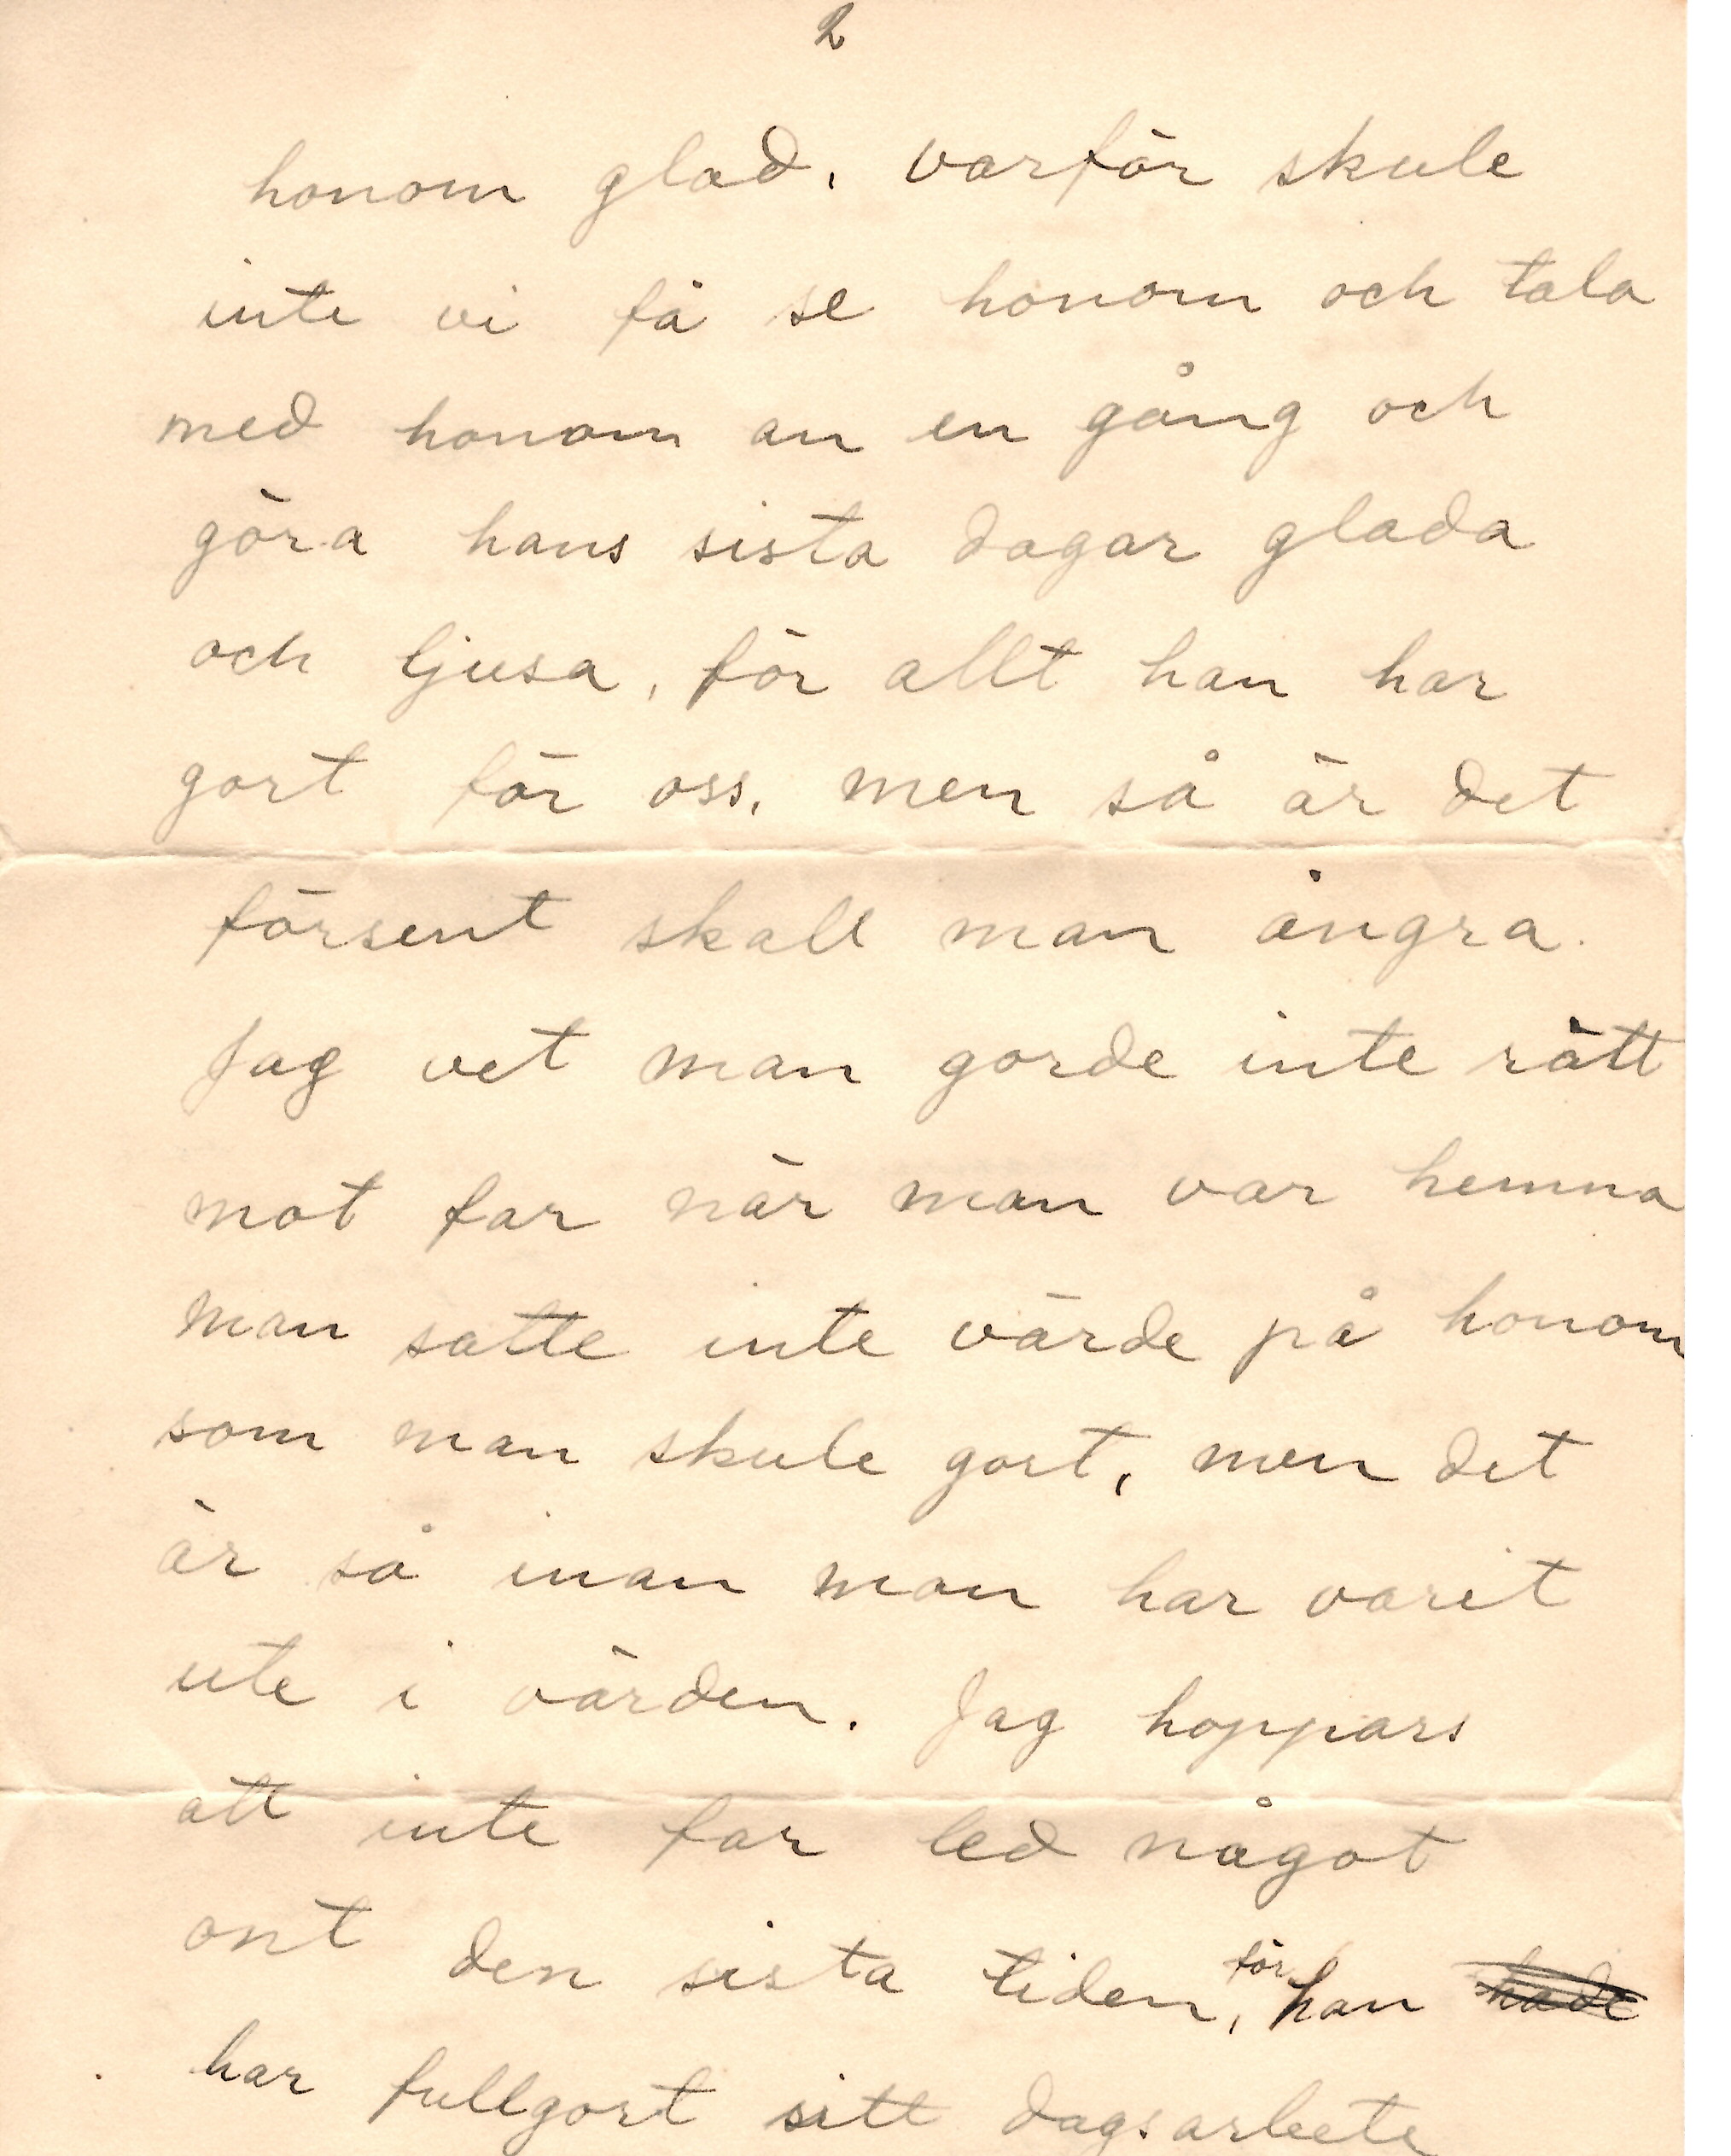 2
honom glad, varför skule
inte vi få se honom och tala
med honom an en gång och
göra hans sista dagar glada
och ljusa, för allt han har
gort för oss, men så är det
försent skall man ångra.
Jag vet man gorde inte rätt
mot far när man var hemma
man satte inte värde på honom
som man skule gort, men det
är så inan man har varit
ute i värden. Jag hoppars
att inte far led något
ont den sista tiden, för han hade
har fullgort sitt dagsarbete